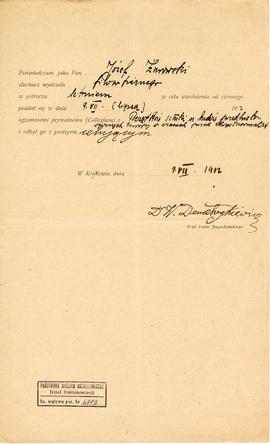 Poświadczam, jako Pan Józef Żurowski
słuchacz wydziału filozoficznego
w półroczu letniem w celu uwolnienia od czesnego
poddał się w dnia 9. VII. (lipca) 192
egzaminowi prywatnemu (Collegium) z sztuki u ludów
Europy w
i odbył go z postępem celującym
W Krakowie, dnia 9. VII. 1912
Dr W. Demetrykiewicz
Prof. Uniw. Jagiellońskiego
PAŃSTWOWE MUZEUM ARCHEOLOGICZNE
Dział Dokumentacji
Ks. wpływu poz. Nr